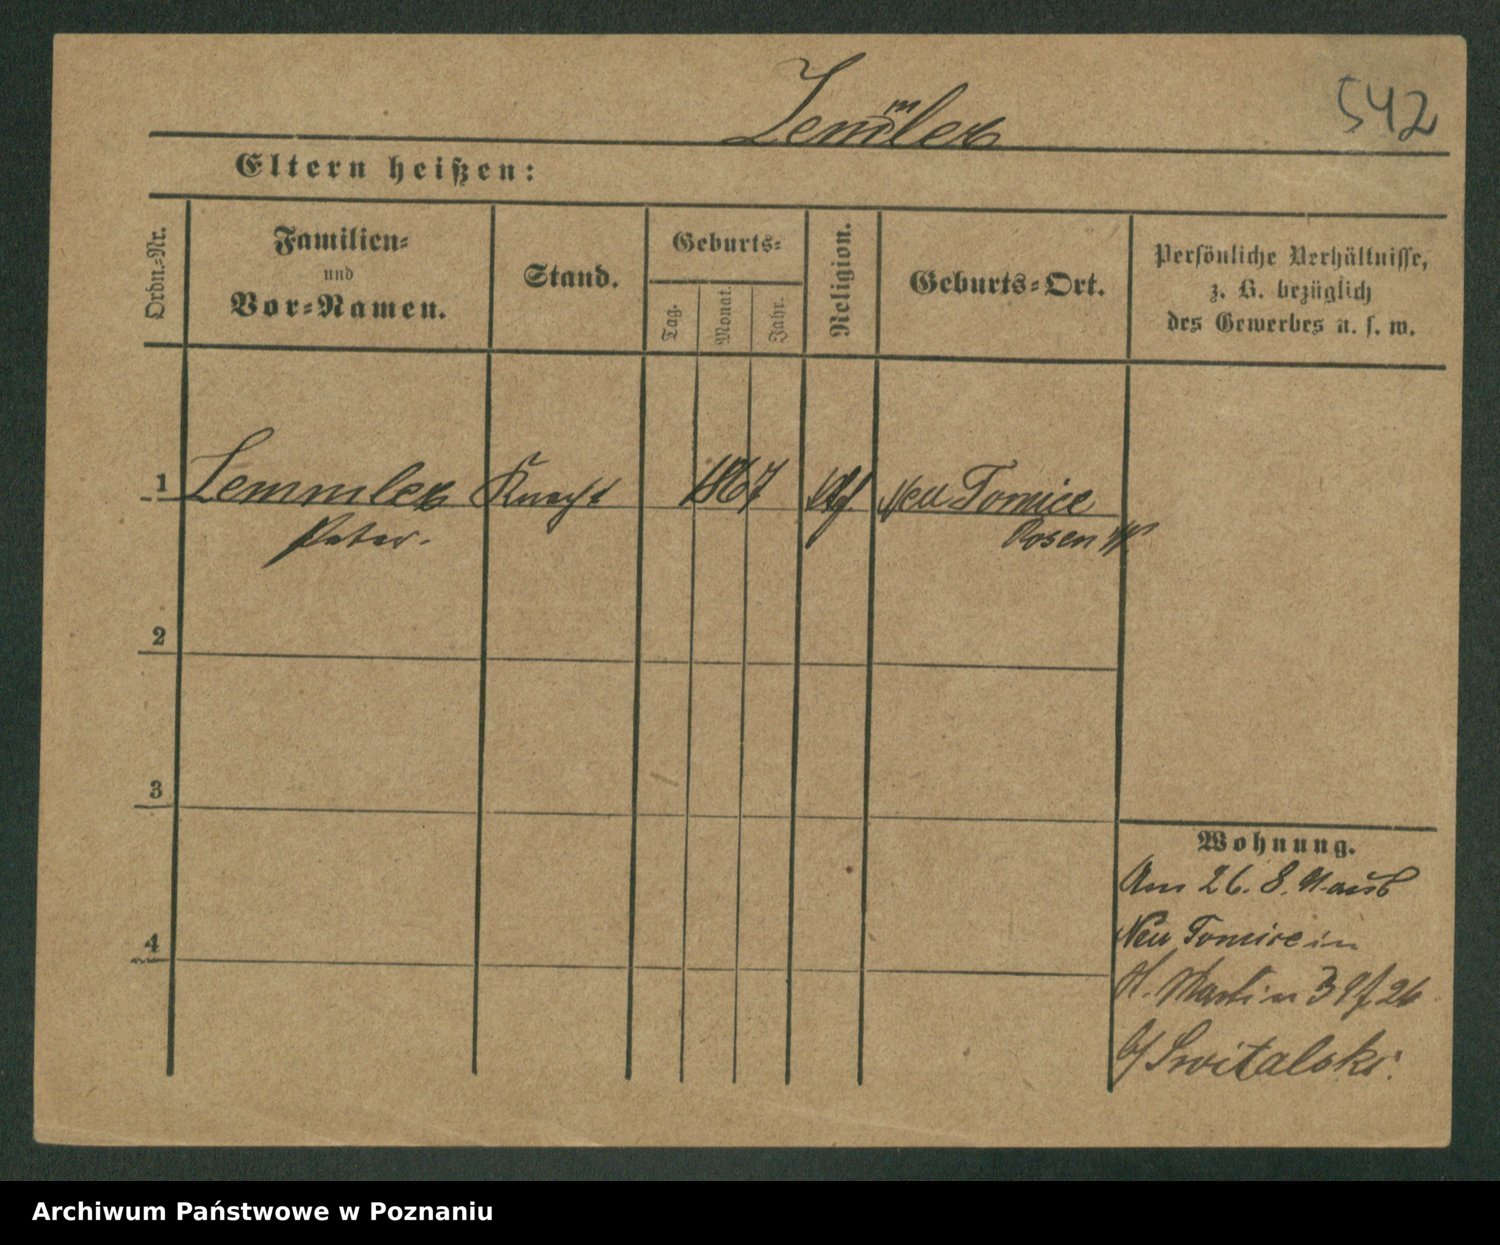 Lemmler
542
Eltern heißen:
Ordn.-Nr.
Familien-
und
Vor-Namen.
Stand.
Geburts-
Tag.
Monat.
Jahr.
Religion.
Geburts-Ort.
Persönliche Verhältnisse,
z. B. bezüglich
des Gewerbes u. s. w.
1 Lemmler Knecht 1867 Neu Tomice
Peter. Posen W
2
3
4
Wohnung.
Am 26. 8. 91 aus
Neu Tomice in
St. Martin 39/26
b/ Switalski.
Archiwum Państwowe w Poznaniu